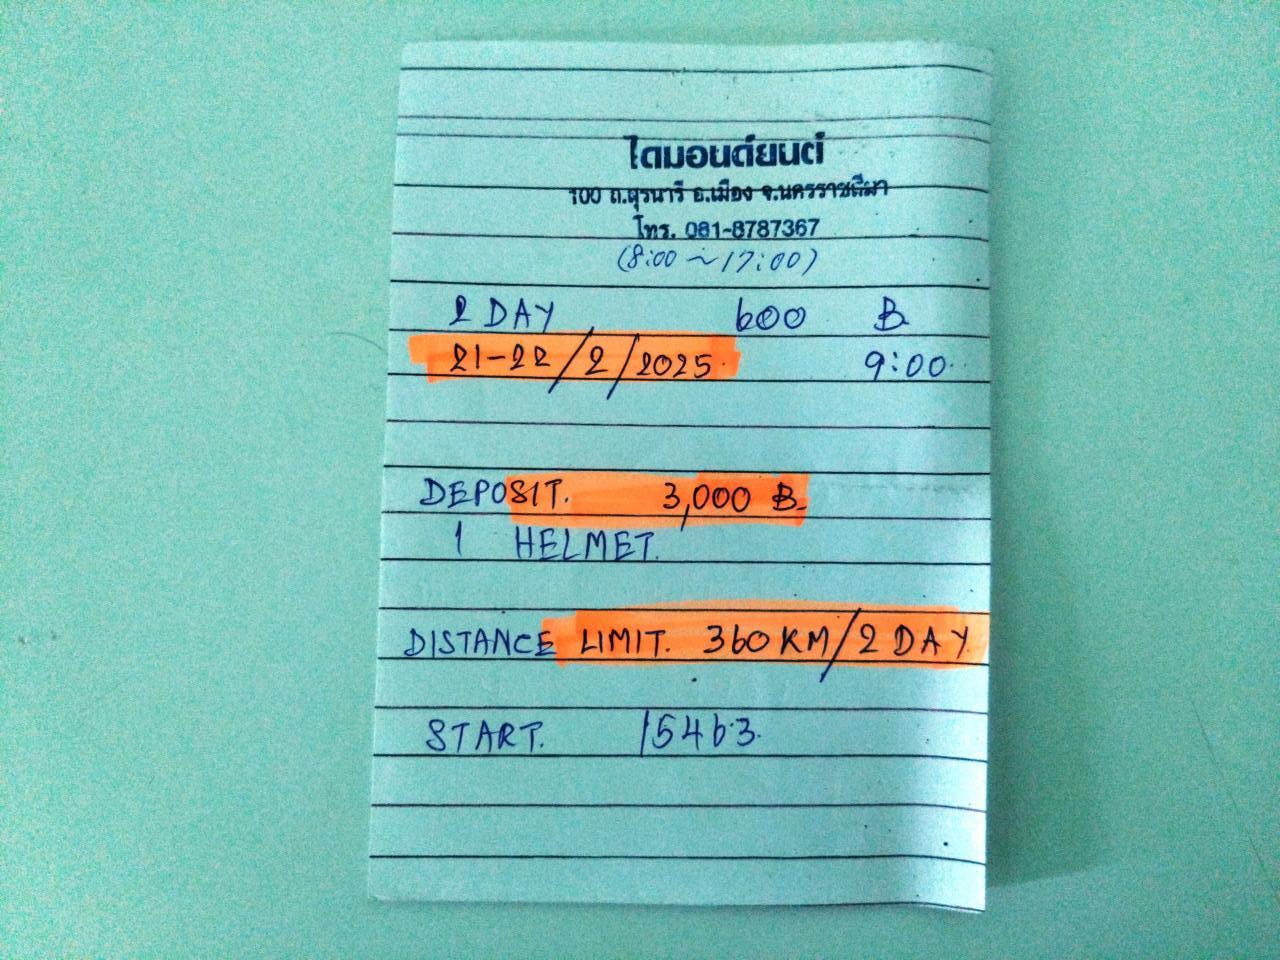 ไดมอนด์ยนต์
100 ถ.สุรนารี อ.เมือง จ.นครราชสีมา
โทร. 081-8787367
(8:00 ~ 17:00)
2 DAY 600 B
21-22/2/2025. 9:00.
DEPOSIT. 3,000 B.
1 HELMET.
DISTANCE LIMIT. 360 KM/2 DAY.
START. 15463.